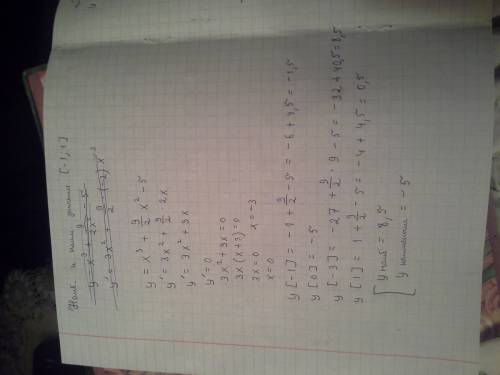 Наиб. и наим. значения [-1;1]
y = x³ + 9/2 x² - 5
y' = 3x² + 9/2 · 2x
y' = 3x² + 9x
y' = 0
3x² + 9x = 0
3x (x + 3) = 0
3x = 0 x = -3
x = 0
y [-1] = -1 + 9/2 - 5 = -6 + 4,5 = -1,5
y [0] = -5
y [-3] = -27 + 9/2 · 9 - 5 = -32 + 40,5 = 8,5
y [1] = 1 + 9/2 - 5 = -4 + 4,5 = 0,5
y наиб = 8,5
y наименьшее = -5